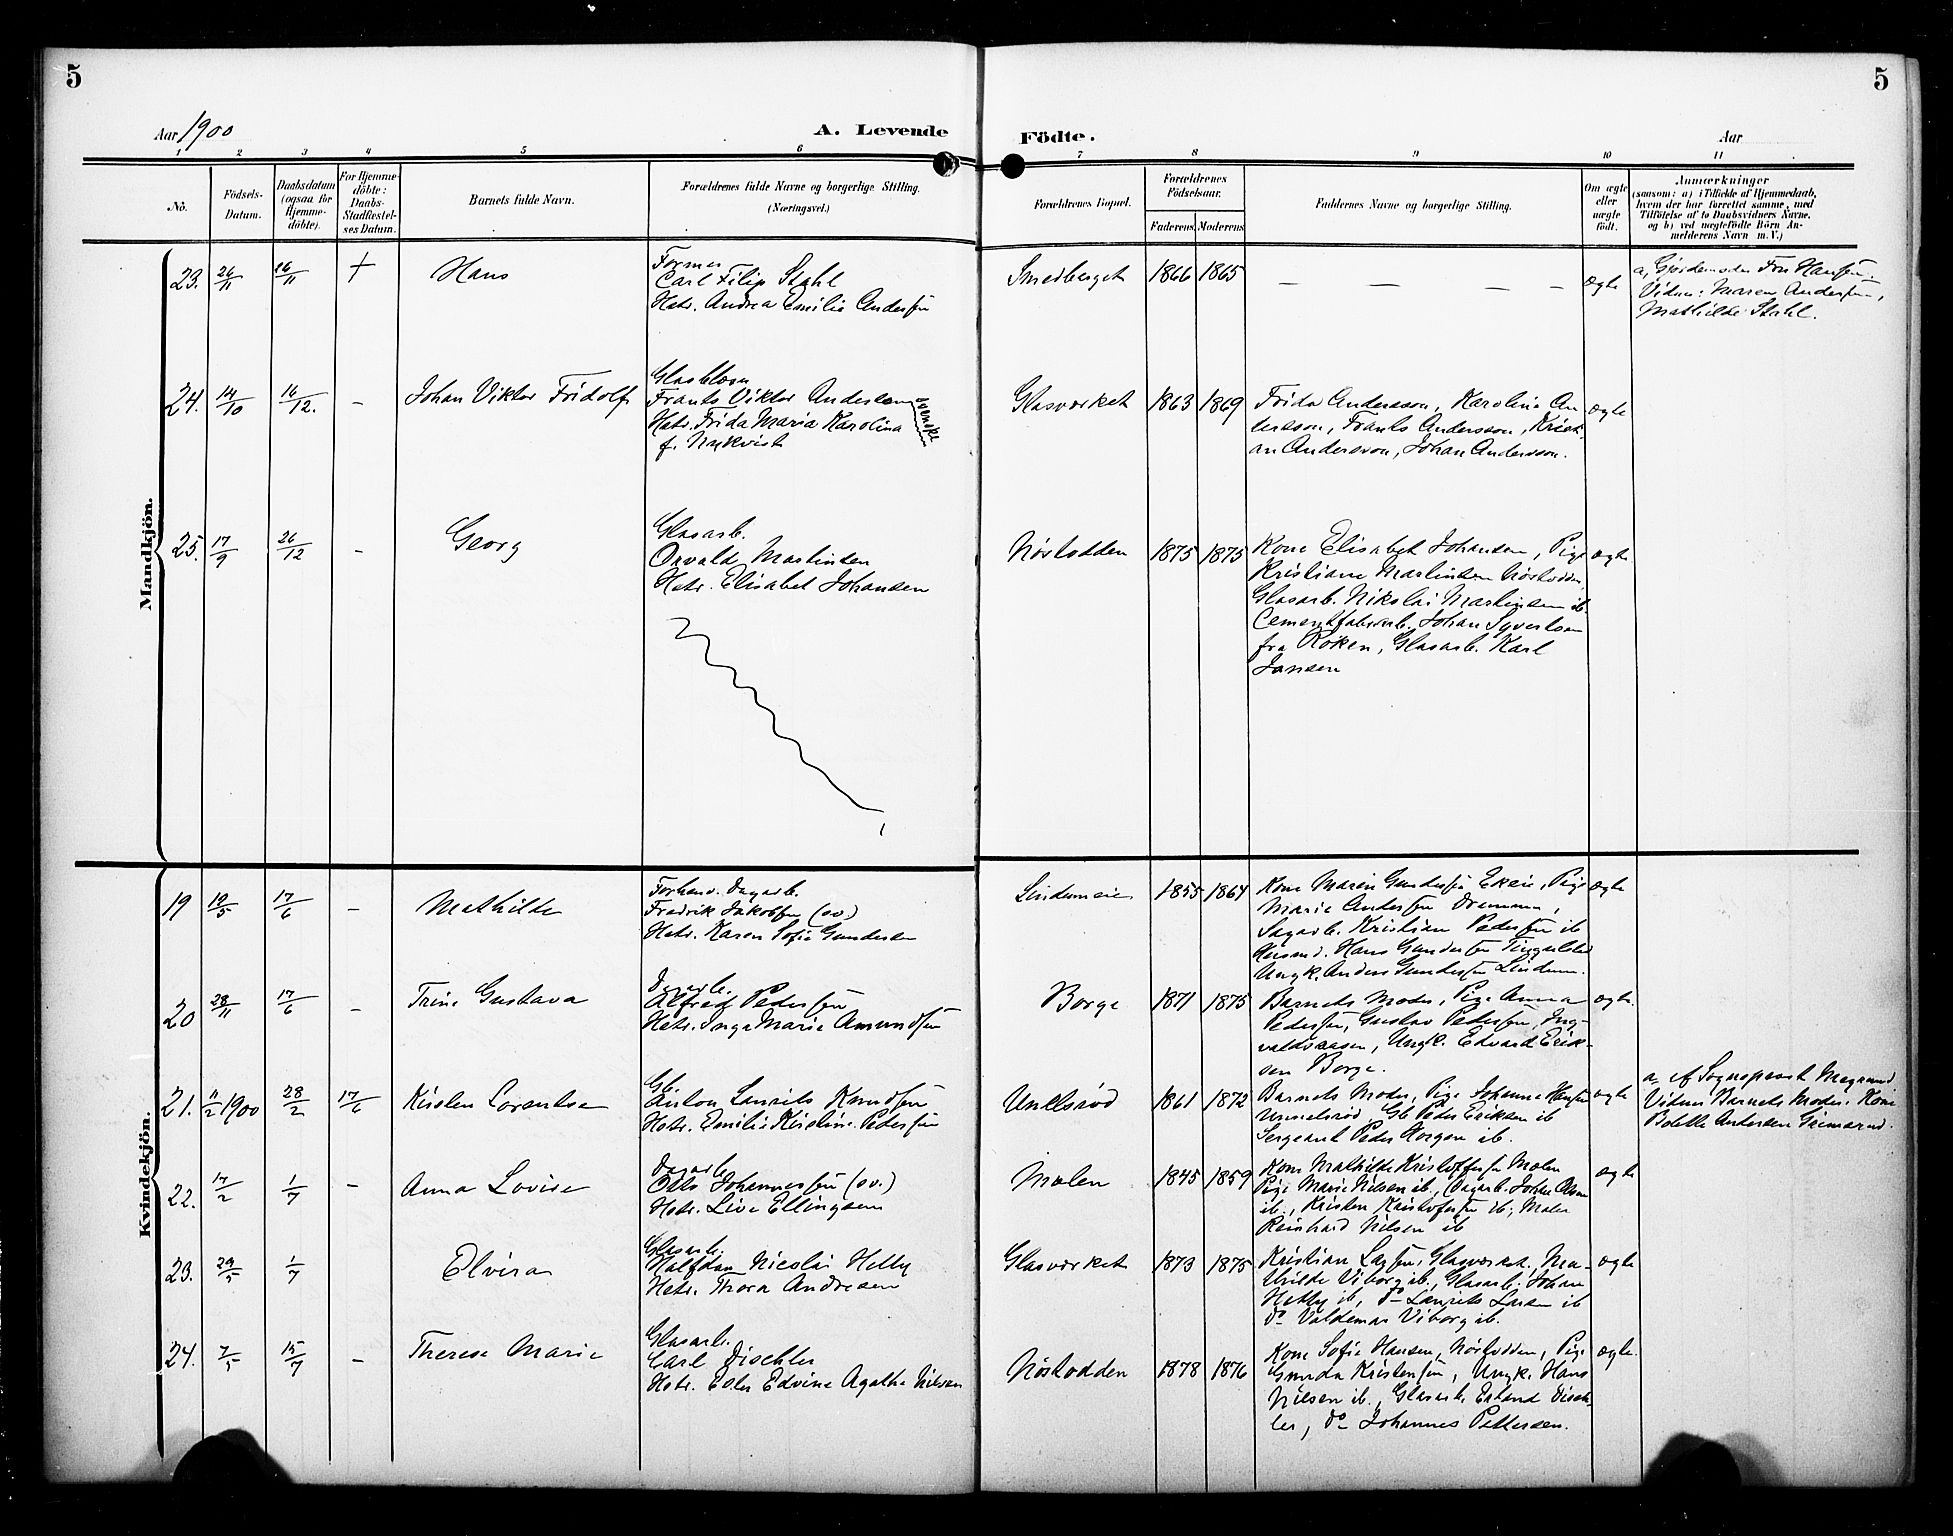 5
5
Aar 1900
A. Levende
Födte.
Aar
1 2 3 4 5 6 7 8 9 10 11
No.
Födsels-
Datum.
Daabsdatum
(ogsaa for
Hjemme-
döbte).
For Hjemme-
döbte:
Daabs-
Stadfæstel-
ses Datum.
Barnets fulde Navn.
Forældrenes fulde Navne og borgerlige Stilling.
(Næringsvei.)
Forældrenes Bopæl.
Forældrenes
Födselsaar.
Faderens. Moderens.
Faddernes Navne og borgerlige Stilling.
Om ægte
eller
uægte
födt.
Anmærkninger
(saasom: a) i Tilfælde af Hjemmedaab,
hvem der har forrettet samme, med
Tilföielse af to Daabsvidners Navne.
og b) ved uægtefödte Börn An-
melderens Navn m. V.)
Mandkjön.
23. 26/11 26/11 + Hans
Former
Carl Filip Stahl
Hstr. Andrea Emilie Andersen
Smedberget 1866 1865 — — — — ægte
a, Gjordemoder Fru Hansen.
Vidner: Maren Andersen,
Mathilde Stahl.
24. 14/10 16/12. - Johan Viktor Fridolf
Glasblæser
Frants Viktor Anderson
Hstr. Frida Maria Karolina
f. Nykvist
svenske
Glasværket 1863 1869
Frida Andersson, Karolina An
dersson, Frants Andersson, Krist
an Andersson, Johan Andersson.
ægte
25. 17/9 26/12 - Georg
Glasarb.
Osvald Martinsen
Hstr. Elisabet Johansen
Nøstodden 1875 1875
Kone Elisabet Johansen, Pige
Kristiane Martinsen Nøstodden,
Glasarb. Nikolai Martinsen ib.
Cementfabrikarb. Johan Syvertsen
fra Røken, Glasarb. Karl
Jansen
ægte
Kvindekjön.
19 19/5 17/6 - Mathilde
Forhenv. Dagarb.
Fredrik Jakobsen (sv.)
Hstr. Karen Sofie Gundersen
Lindumeie 1855 1864
Kone Maren Gundersen Ekeie, Pige
Marie Andersen Drammen,
Sagarb. Kristian Pedersen ib
Hans Gundersen Tingelstad
Ungk. Anders Gundersen Lindum.
ægte
20 28/11 17/6 - Trine Gustava
Dagarb.
Alfred Pedersen
Hstr. Inga Marie Amundsen
Borge 1871 1875
Barnets Moder, Pige Anna
Pedersen, Gustav Pedersen, Ing-
valdsaasen, Ungk. Edvard Erik-
sen Borge.
ægte.
21. 11/2 1900 28/2 17/6 Kirsten Lorentse
Gb.
Anton Laurits Knudsen
Hstr. Emilie Kristine Pedersen
Unelsrød 1861 1872
Barnets Moder, Pige Johanne Hansen
Unnelsrød, Gb Peder Eriksen ib
Sergeant Peder Horgen ib.
ægte
a, af Sognepræst Magnund
Vidner Barnets Moder, Kone
Bolette Andersen Grimsrud.
22. 17/2 1/7 - Anna Lovise
Dagarb.
Otto Johannessen (sv.)
Hstr. Live Ellingsen
Molen 1845 1859
Kone Mathilde Kristoffersen Molen
Pige Marie Nilsen ib., Dagarb. Johan Olsen
ib., Kristen Kristofersen ib, Maler
Reinhard Nilsen ib
ægte
23. 29/5 1/7 Elvira
Glasarb.
Halfdan Nicolai Helby
Hstr. Thora Andresen
Glasværket 1873 1875
Kristian Larsen, Glasværket, Ma-
thilde Viborg ib., Glasarb. Johan
Helby ib, do Laurits Larsen ib
do Valdemar Viborg ib.
ægte
24. 7/5 15/7 - Therese Marie
Glasarb.
Carl Dischler
Hstr. Edle Edvine Agathe Nilsen
Nøstodden 1878 1876
Kone Sofie Hansen, Nøstodden, Pige
Gunda Kristensen, Ungk. Hans
Nilsen ib., Glasarb. Erland Disch-
ler, do Johannes Pettersen.
ægte.